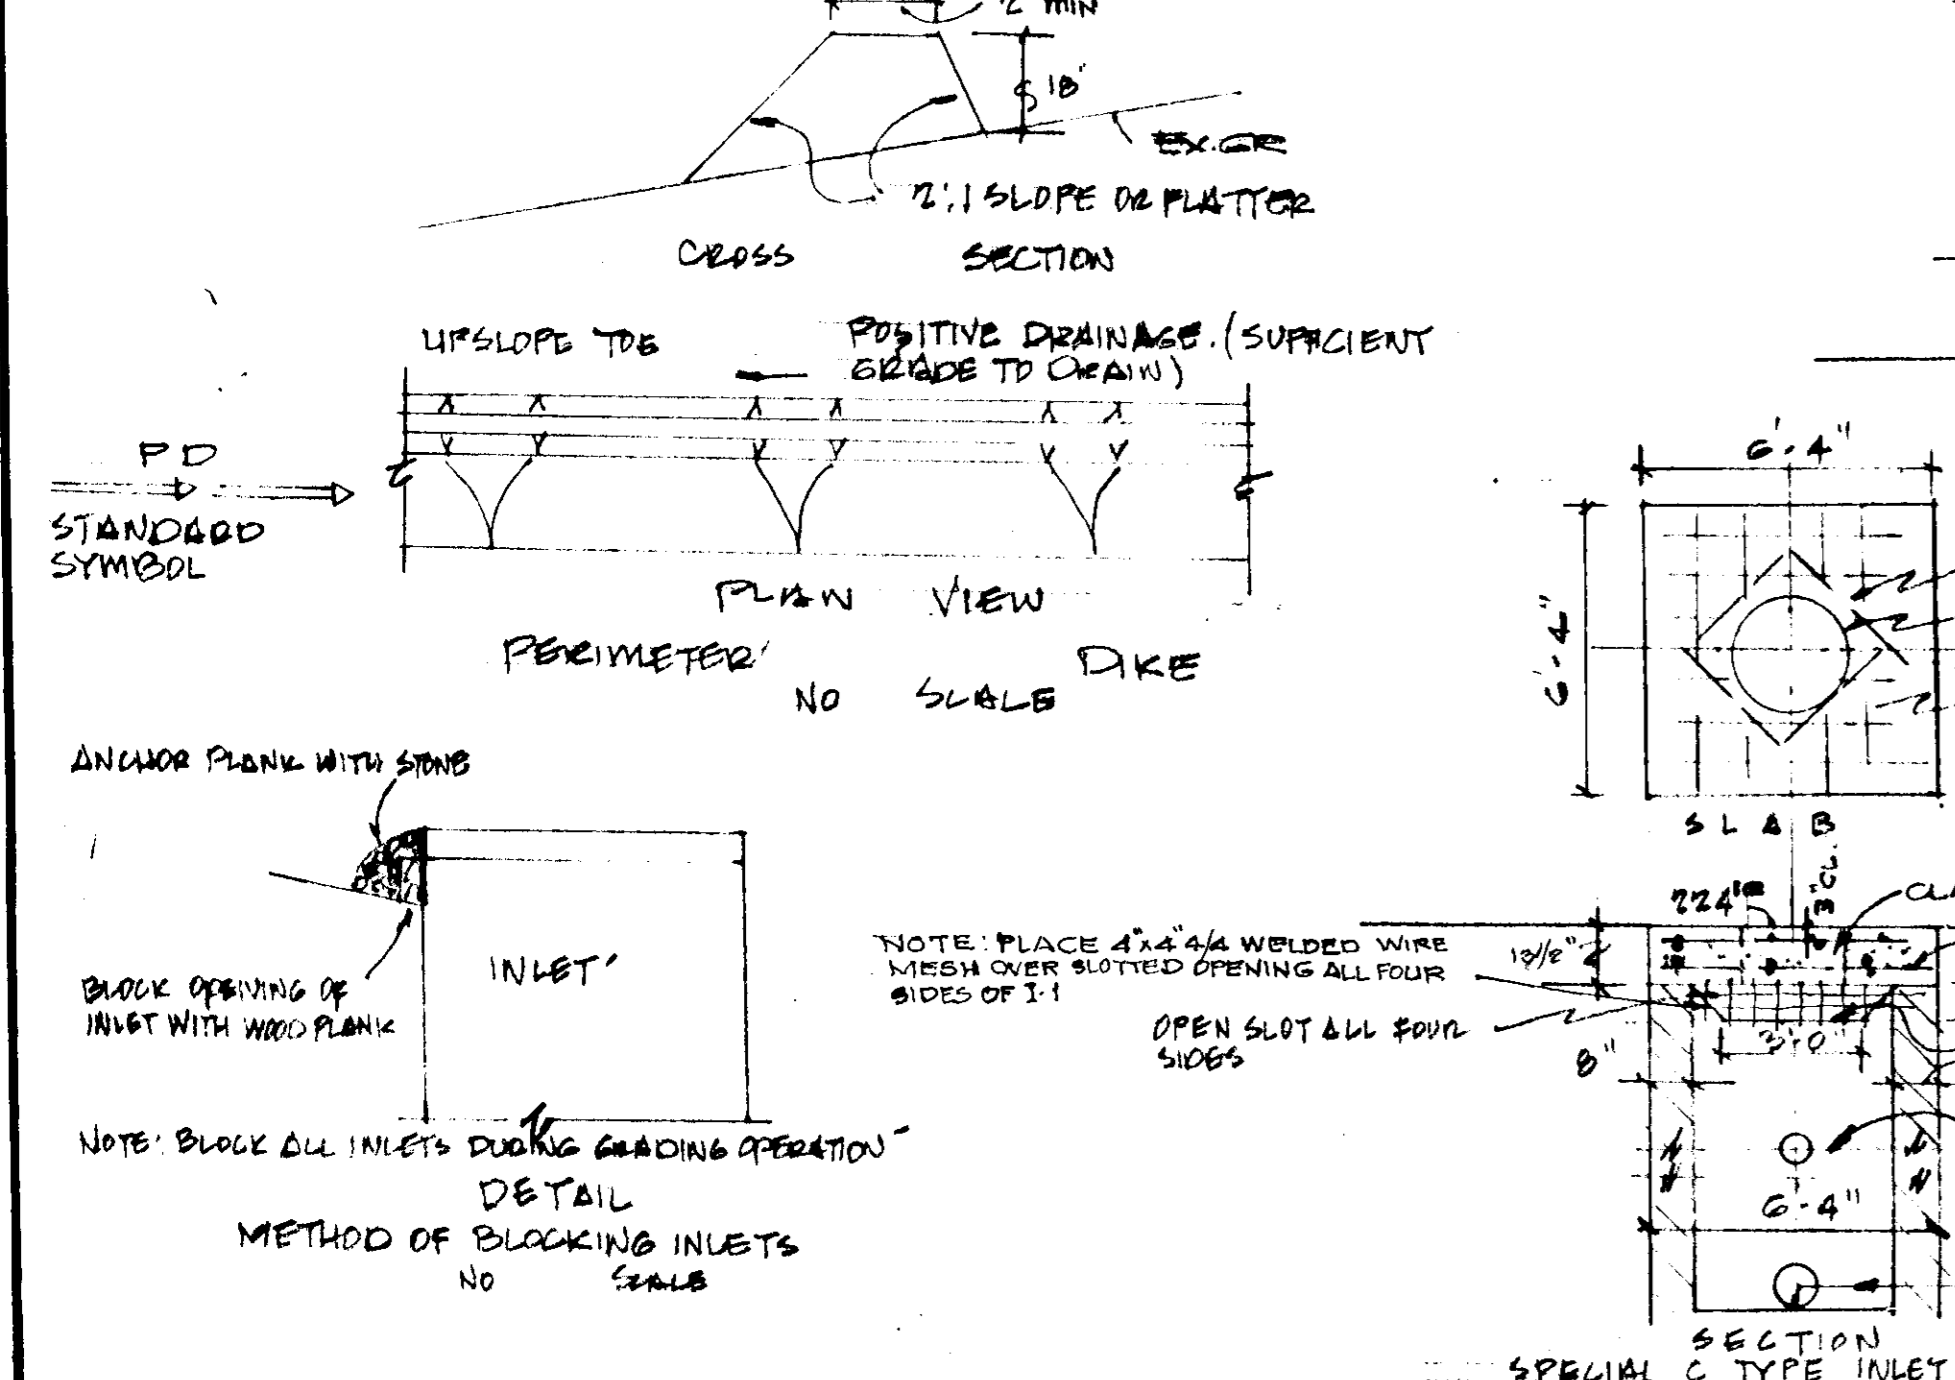 2' MIN
18"
EX. GR
2:1 SLOPE OR FLATTER
CROSS SECTION
UPSLOPE TOE
POSITIVE DRAINAGE. (SUFFICIENT
GRADE TO DRAIN)
PD
STANDARD
SYMBOL
PLAN VIEW
PERIMETER DIKE
NO SCALE
ANCHOR PLANK WITH STONE
INLET
BLOCK OPENING OF
INLET WITH WOOD PLANK
NOTE: BLOCK ALL INLETS DURING GRADING OPERATION
DETAIL
METHOD OF BLOCKING INLETS
NO SCALE
6'-4"
6'-4"
SLAB
3" CL.
NOTE: PLACE 4"x4" 4/4 WELDED WIRE
MESH OVER SLOTTED OPENING ALL FOUR
SIDES OF I-1
OPEN SLOT ALL FOUR
SIDES
8"
3'-0"
6'-4"
SECTION
SPECIAL C TYPE INLET